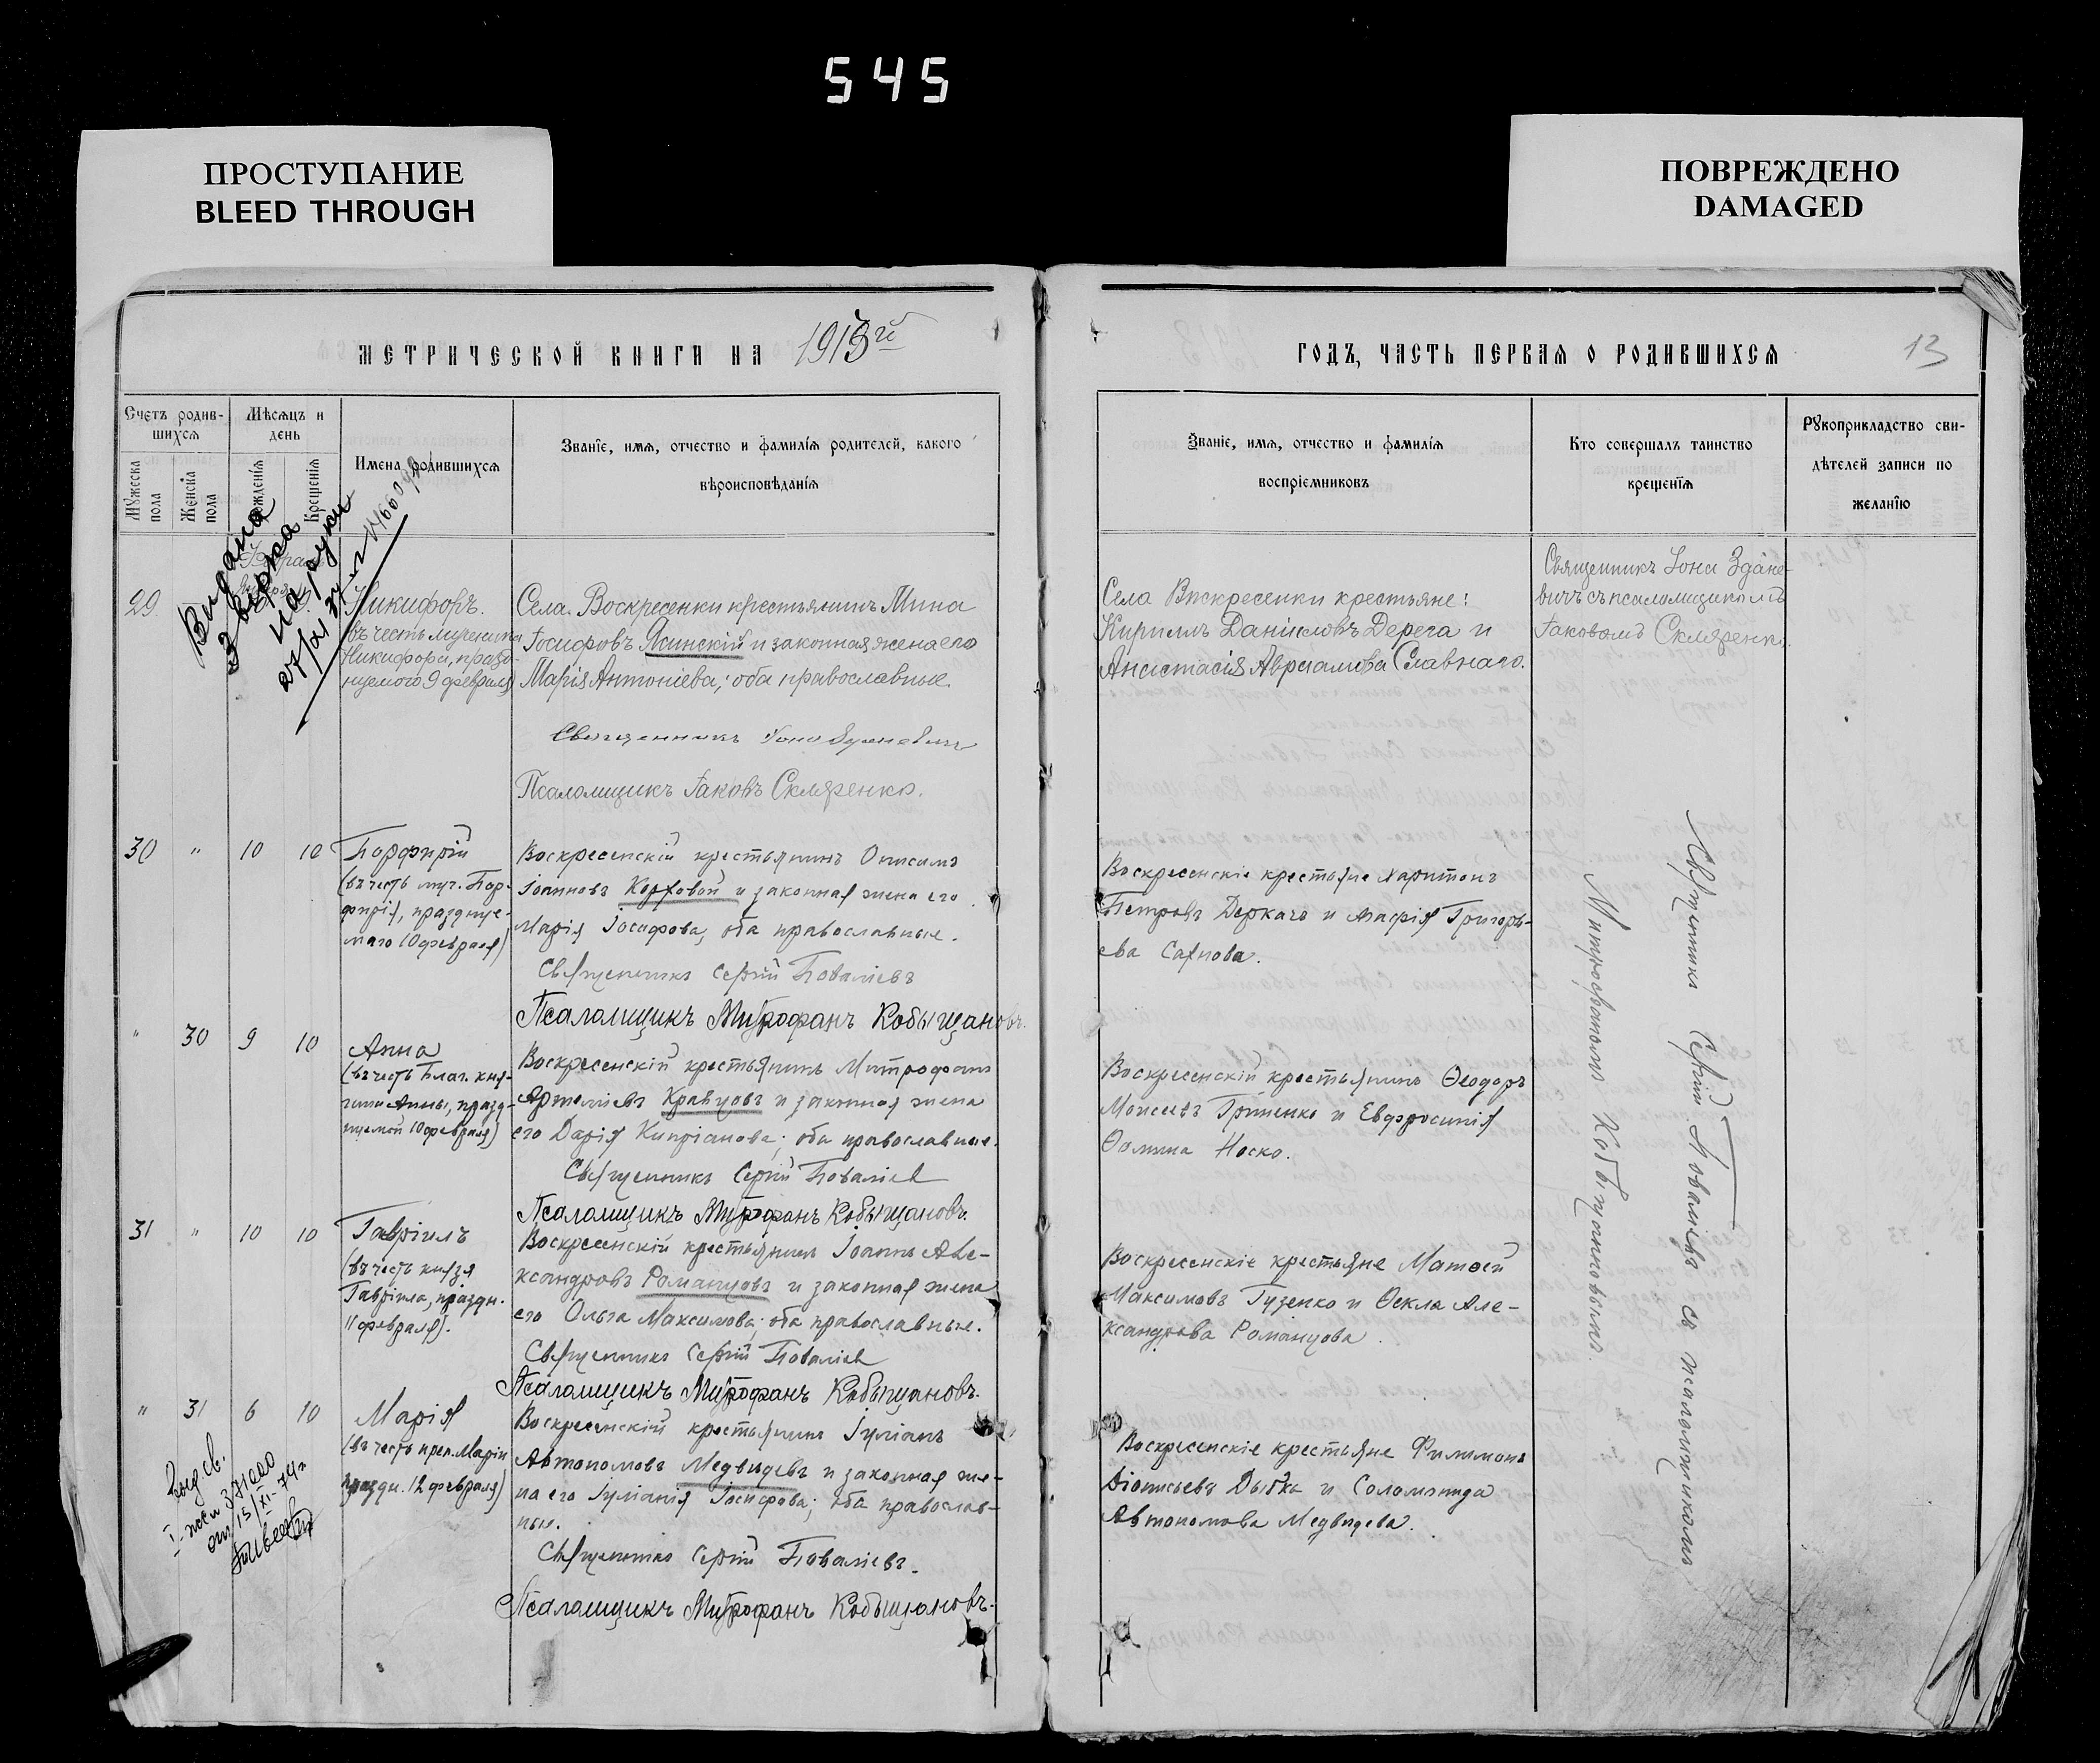 545
ПРОСТУПАНИЕ
BLEED THROUGH
ПОВРЕЖДЕНО
DAMAGED
МЕТРИЧЕСКОЙ КНИГИ НА 1913й
ГОДЪ, ЧАСТЬ ПЕРВАЯ О РОДИВШИХСЯ
13
Счетъ родив-
шихся
Мѣсяцъ и
день
Мужеска
пола
Женска
пола
Рожденія
Крещенія
Имена родившихся
Званіе, имя, отчество и фамилія родителей, какого
вѣроисповѣданія
Званіе, имя, отчество и фамилія
воспріемниковъ
Кто совершалъ таинство
крещенія
Рукоприкладство сви-
дѣтелей записи по
желанію
Видана
на руки
29
Никифоръ.
въ честь мученика
Никифора, праздн-
уемого 9 февраля
Села Воскресенки крестьянинъ Мина
Іосифовъ Ясинскій и законная жена его
Марія Антоніева; оба православные.
Священникъ Іона
Псаломщикъ Іаковъ Скляренко.
Села Воскресенки крестьяне:
Кириллъ Даніиловъ Дерега и
Анастасія Авраамова Славнаго.
Священникъ Іона Здане-
вичъ съ псаломщикомъ
Іаковомъ Скляренко
30 " 10 10
Порфирій
(въ честь муч. Пор-
фирія, празднуе-
маго 10 февраля)
Воскресенскій крестьянинъ Онисимъ
Іоанновъ Коржовой и законная жена его
Марія Іосифова, оба православные.
Священникъ Сергій Поваліевъ
Псаломщикъ Митрофанъ Кобыщановъ.
Воскресенскіе крестьяне Харитонъ
Петровъ Деркачъ и Агафія Григорь-
ева Сахнова.
" 30 9 10
Анна
(въ честь Благ. кня-
гини Анны, празд-
нуемой 10 февраля)
Воскресенскій крестьянинъ Митрофанъ
Артеміевъ Кравцовъ и законная жена
его Дарія Кипріанова; оба православные.
Священникъ Сергій Поваліев
Псаломщикъ Митрофанъ Кобыщановъ.
Воскресенскій крестьянинъ Ѳеодоръ
Моисеевъ Гриненко и Евфросинія
Ѳомина Носко.
31 " 10 10
Гавріилъ
(въ честь князя
Гавріила, праздн.
11 февраля).
Воскресенскій крестьянинъ Іоаннъ Але-
ксандровъ Романцовъ и законная жена
его Ольга Максимова; оба православные.
Священникъ Сергій Поваліев
Псаломщикъ Митрофанъ Кобыщановъ.
Воскресенскіе крестьяне Матѳей
Максимовъ Гузенко и Ѳекла Але-
ксандрова Романцова.
" 31 6 10
Марія
(въ честь преп. Маріи
праздн. 12 февраля)
Воскресенскій крестьянинъ Іуліанъ
Автономовъ Медвидевъ и законная же-
на его Іуліанія Іосифова; оба православ-
ные.
Священникъ Сергій Поваліевъ.
Псаломщикъ Митрофанъ Кобыщановъ.
Воскресенскіе крестьяне Филимонъ
Діонисьевъ Дыбка и Соломонида
Автономова Медвидева.
Священникъ Сергій Поваліевъ съ псаломщикомъ
Митрофаномъ Кобыщановымъ.